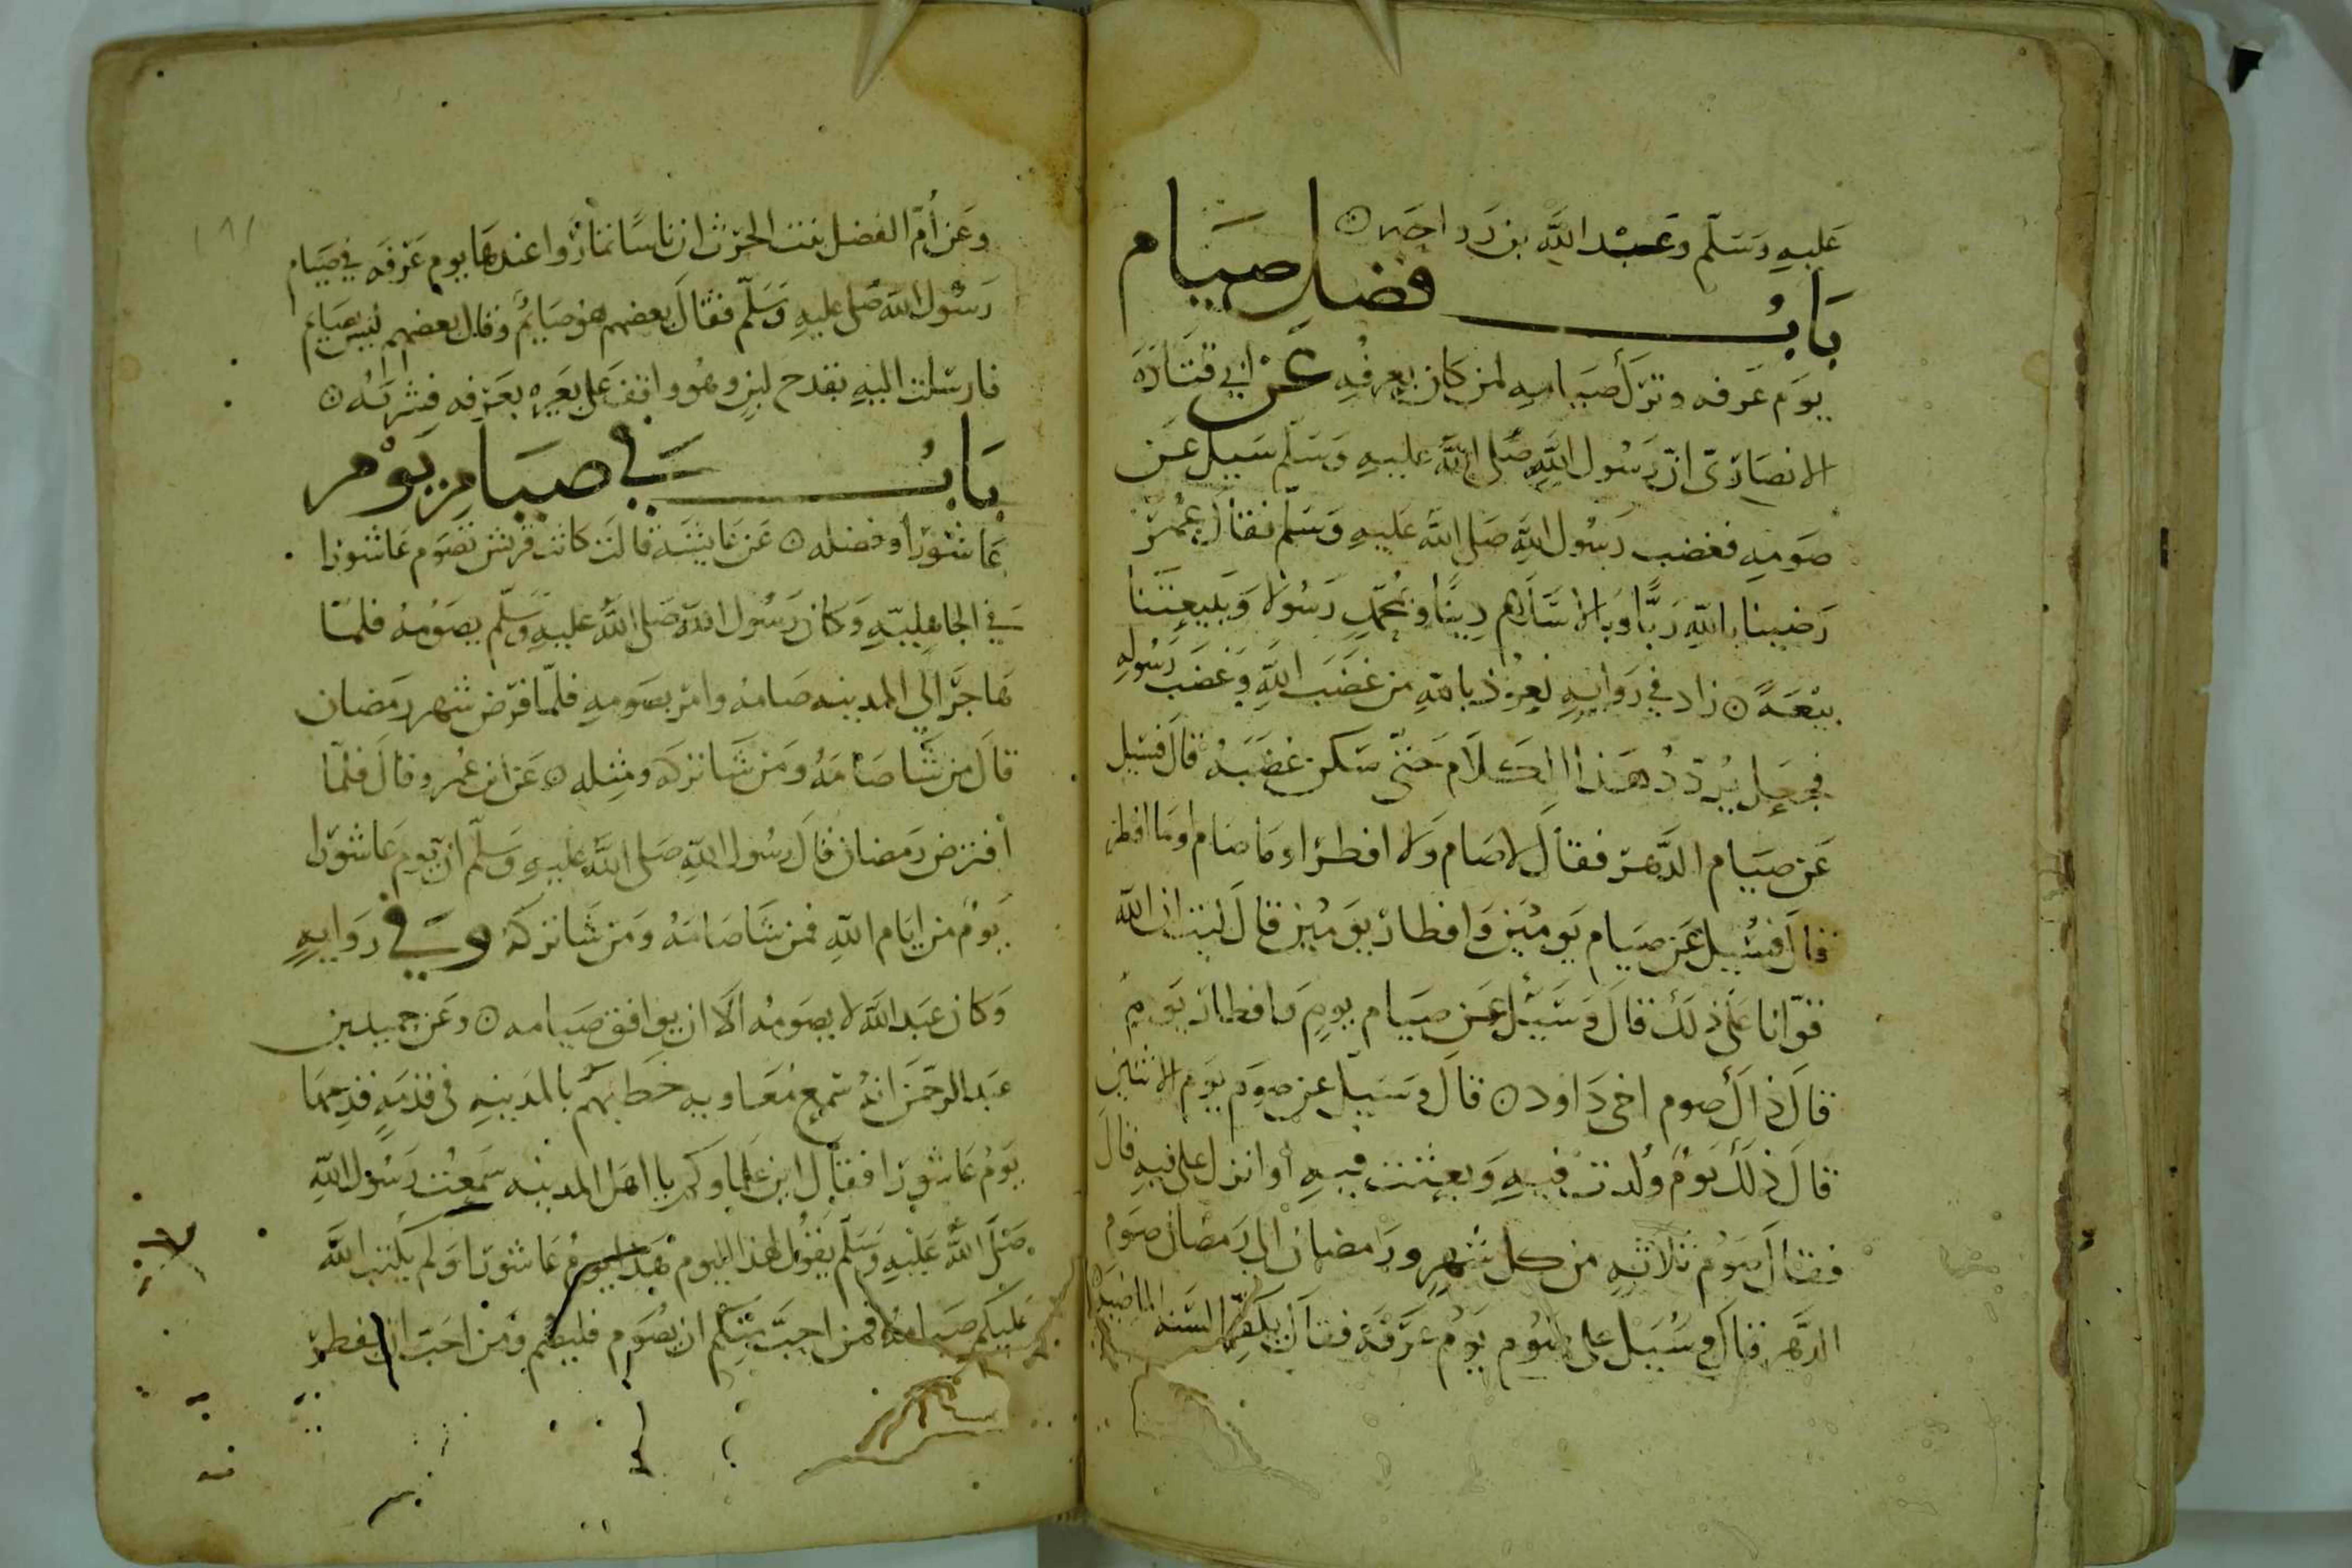 عليه وسلم وعبد الله بن رواحه ۞
باب فضل صيام
يوم عرفه وترك صيامه لمن كان بعرفه عن ابي قتادة
الانصاري ان رسول الله صلى الله عليه وسلم سيل عن
صومه فغضب رسول الله صلى الله عليه وسلم فقال عمر
رضينا بالله ربا وبالاسلام دينا وبمحمد رسولا وببيعتنا
بيعة ۞ زاد في روايه نعوذ بالله من غضب الله وغضب رسوله
فجعل يردد هذا الكلام حتى سكن غضبه قال فسيل
عن صيام الدهر فقال لا صام ولا افطر او ما صام وما افطر
قال فسيل عن صيام يومين وافطار يومين قال ليت ان الله
قوانا على ذلك قال وسيل عن صيام يوم وافطار يوم
قال ذاك صوم اخي داود ۞ قال وسيل عن صوم يوم الاثنين
قال ذلك يوم ولدت فيه وبعثت فيه او انزل علي فيه قال
فقال صوم ثلاثه من كل شهر ورمضان الى رمضان صوم
الدهر قال وسيل على صوم يوم عرفة فقال يكفر السنه الماضية
وعن أم الفضل بنت الحرث ان ناسا تماروا عندها يوم عرفه في صيام
رسول الله صلى عليه وسلم فقال بعضهم هو صائم وقال بعضهم ليس بصايم
فارسلت اليه بقدح لبن وهو واقف على بعيره بعرفه فشربه ۞
باب في صيام يوم
عاشورا وفضله ۞ عن عايشة قالت كانت قريش تصوم عاشورا
في الجاهلية وكان رسول الله صلى الله عليه وسلم يصومه فلما
هاجر الى المدينه صامه وامر بصومه فلما فرض شهر رمضان
قال من شا صامه ومن شا تركه ومثله ۞ عن ابن عمر وقال فلما
أفترض رمضان قال رسول الله صلى الله عليه وسلم ان يوم عاشورا
يوم من ايام الله فمن شا صامه ومن شا تركه وفي روايه
وكان عبد الله لا يصومه الا ان يوافق صيامه ۞ وعن حميد بن
عبد الرحمن انه سمع معاويه خطبهم بالمدينه في قدمة قدمها
يوم عاشورا فقال اين علماوكم يا اهل المدينه سمعت رسول الله
صلى الله عليه وسلم يقول لهذا اليوم هذا اليوم عاشورا ولم يكتب الله
عليكم صيامه فمن احب منكم ان يصوم فليصم ومن احب ان يفطر